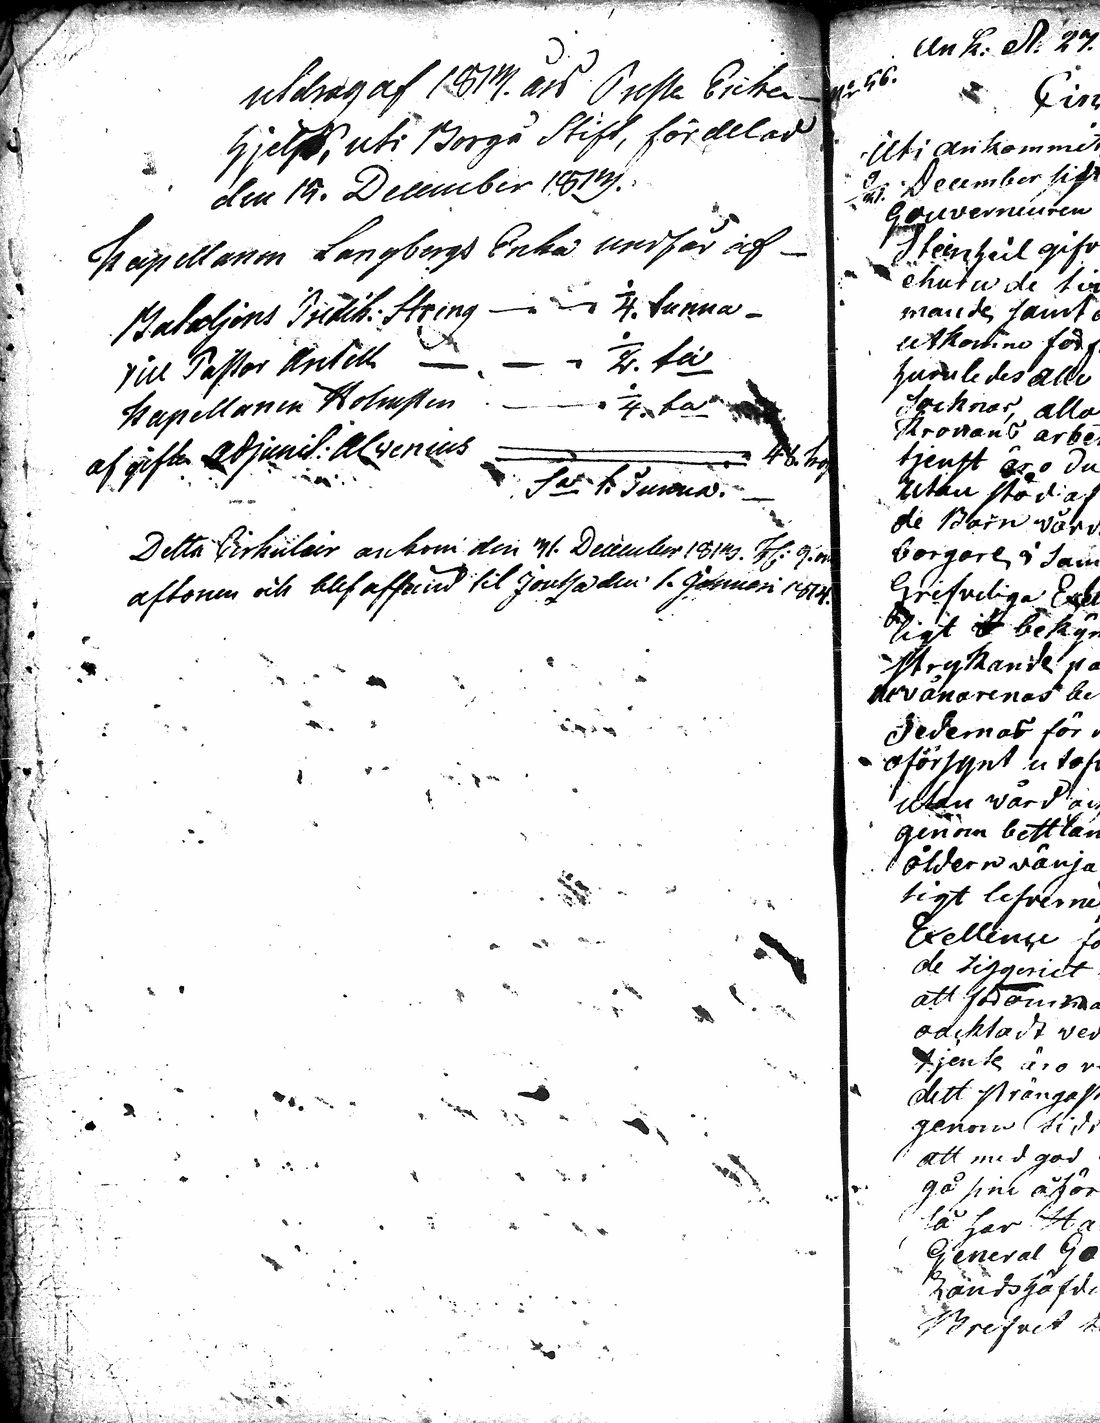 utdrag af 1813. års Preste Enke-
hjelp, uti Borgå Stift, fördelad
den 15. December 1813.
Kapellanen Langbergs Enka undfår af -
Bataljons Predik: Streng — . — . 1/4. tunna -
vice Pastor Antell — . — - 1/4. ta
Kapellanen Holmsten — . 1/4. ta
afgifter Adjunct: Alvenius 48. kop
Sa 1. Tunna. -
Detta Cirkulair ankom den 31. December 1813. Kl: 9. om
aftonen och blef afsänd til den 1. Januari 1814.
Ank. d. 27.
No 56.
Cir
Uti ankommit
December sist
Gouverneuren
Steinheil gifv
mande, samt
utkomne för
huruledes alle
Socknar, alla
Kronans arbe
tjenst äro du
Utan stöd af
de Barn vård
borgare, i Sam
Grefveliga Exel
ligt bekym
strykande på
invånarenas be
Sedernas för
oförsynt utöf
utan vård och
genom bettlan
åldern vänja
tigt lefverne
Exellence fö
de tiggeriet
att
oachtadt ved
tjente äro
dett strängast
genom tids
att med god
gå sine åhör
så har Ha
General Go
Landshöfdi
Brefvet